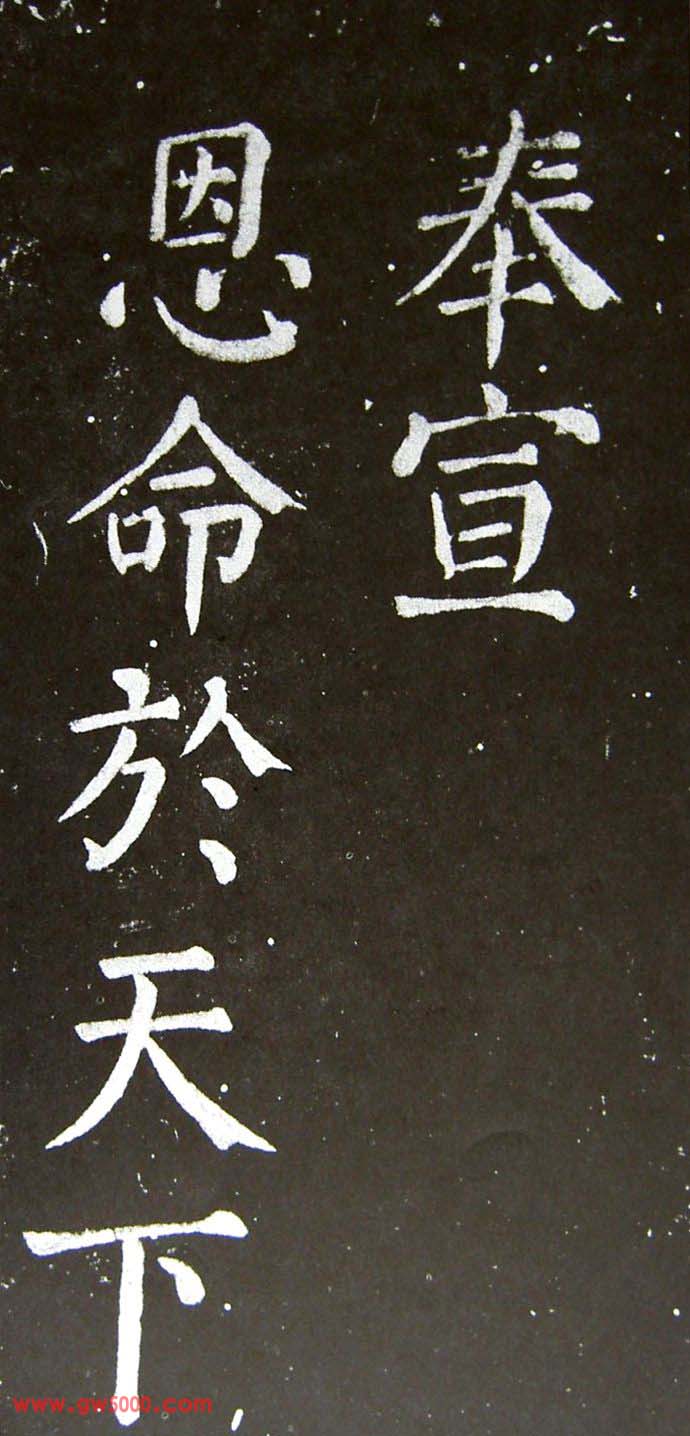 奉宣
恩命於天下
www.gw5000.com